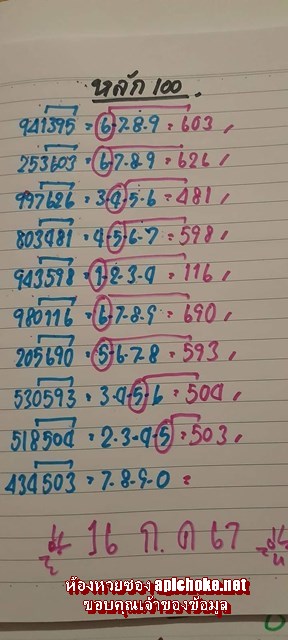 หลัก 100
941395 = 6-7-8-9 = 603
253603 = 6-7-8-9 = 626
997626 = 3-4-5-6 = 481
803481 = 4-5-6-7 = 598
943598 = 1-2-3-4 = 116
980116 = 6-7-8-9 = 690
205690 = 5-6-7-8 = 593
530593 = 3-4-5-6 = 504
518504 = 2-3-4-5 = 503
434503 = 7-8-9-0 =
16 ก.ค 67
ห้องหวยซอง aplchoke.net
ขอบคุณเจ้าของข้อมูล